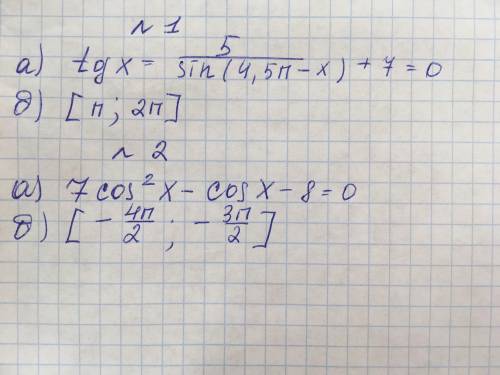 № 1
а) tg x = 5/sin(4,5π - x) + 7 = 0
б) [π; 2π]
№ 2
а) 7 cos² x - cos x - 8 = 0
б) [- 4π/2; - 3π/2]